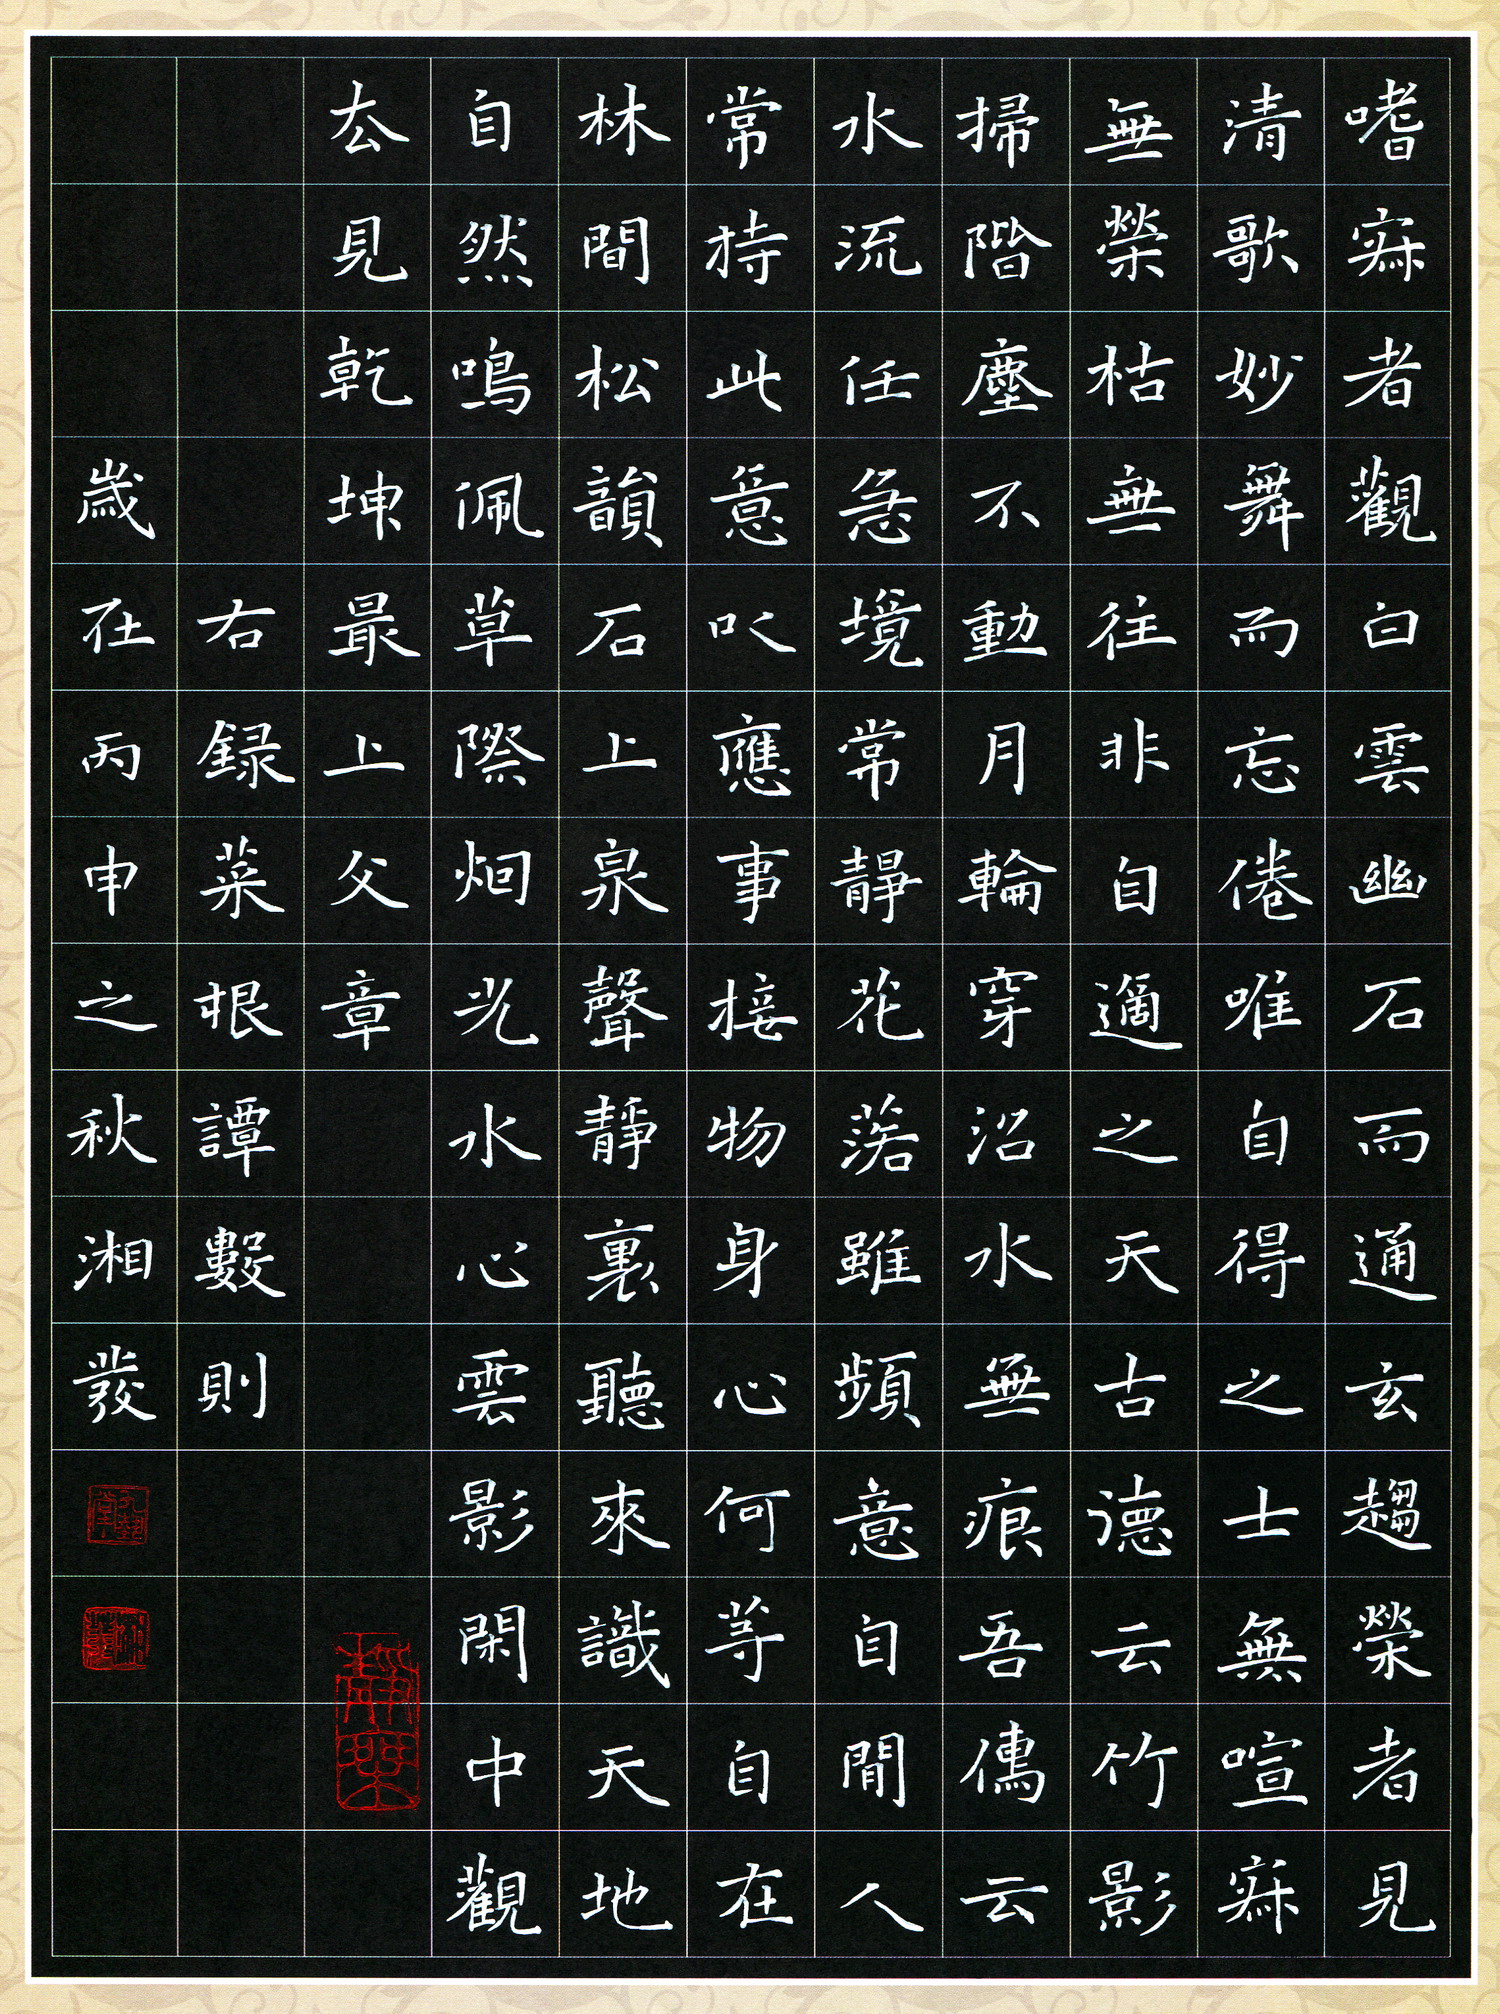 嗜寂者觀白雲幽石而通玄趨榮者見
清歌妙舞而忘倦唯自得之士無喧寂
無榮枯無往非自適之天古德云竹影
掃階塵不動月輪穿沼水無痕吾儒云
水流任急境常靜花落雖頻意自閒人
常持此意以應事接物身心何等自在
林間松韻石上泉聲靜裏聽來識天地
自然鳴佩草際烟光水心雲影閑中觀
去見乾坤最上文章
右録菜根譚數則
歲在丙申之秋湘發